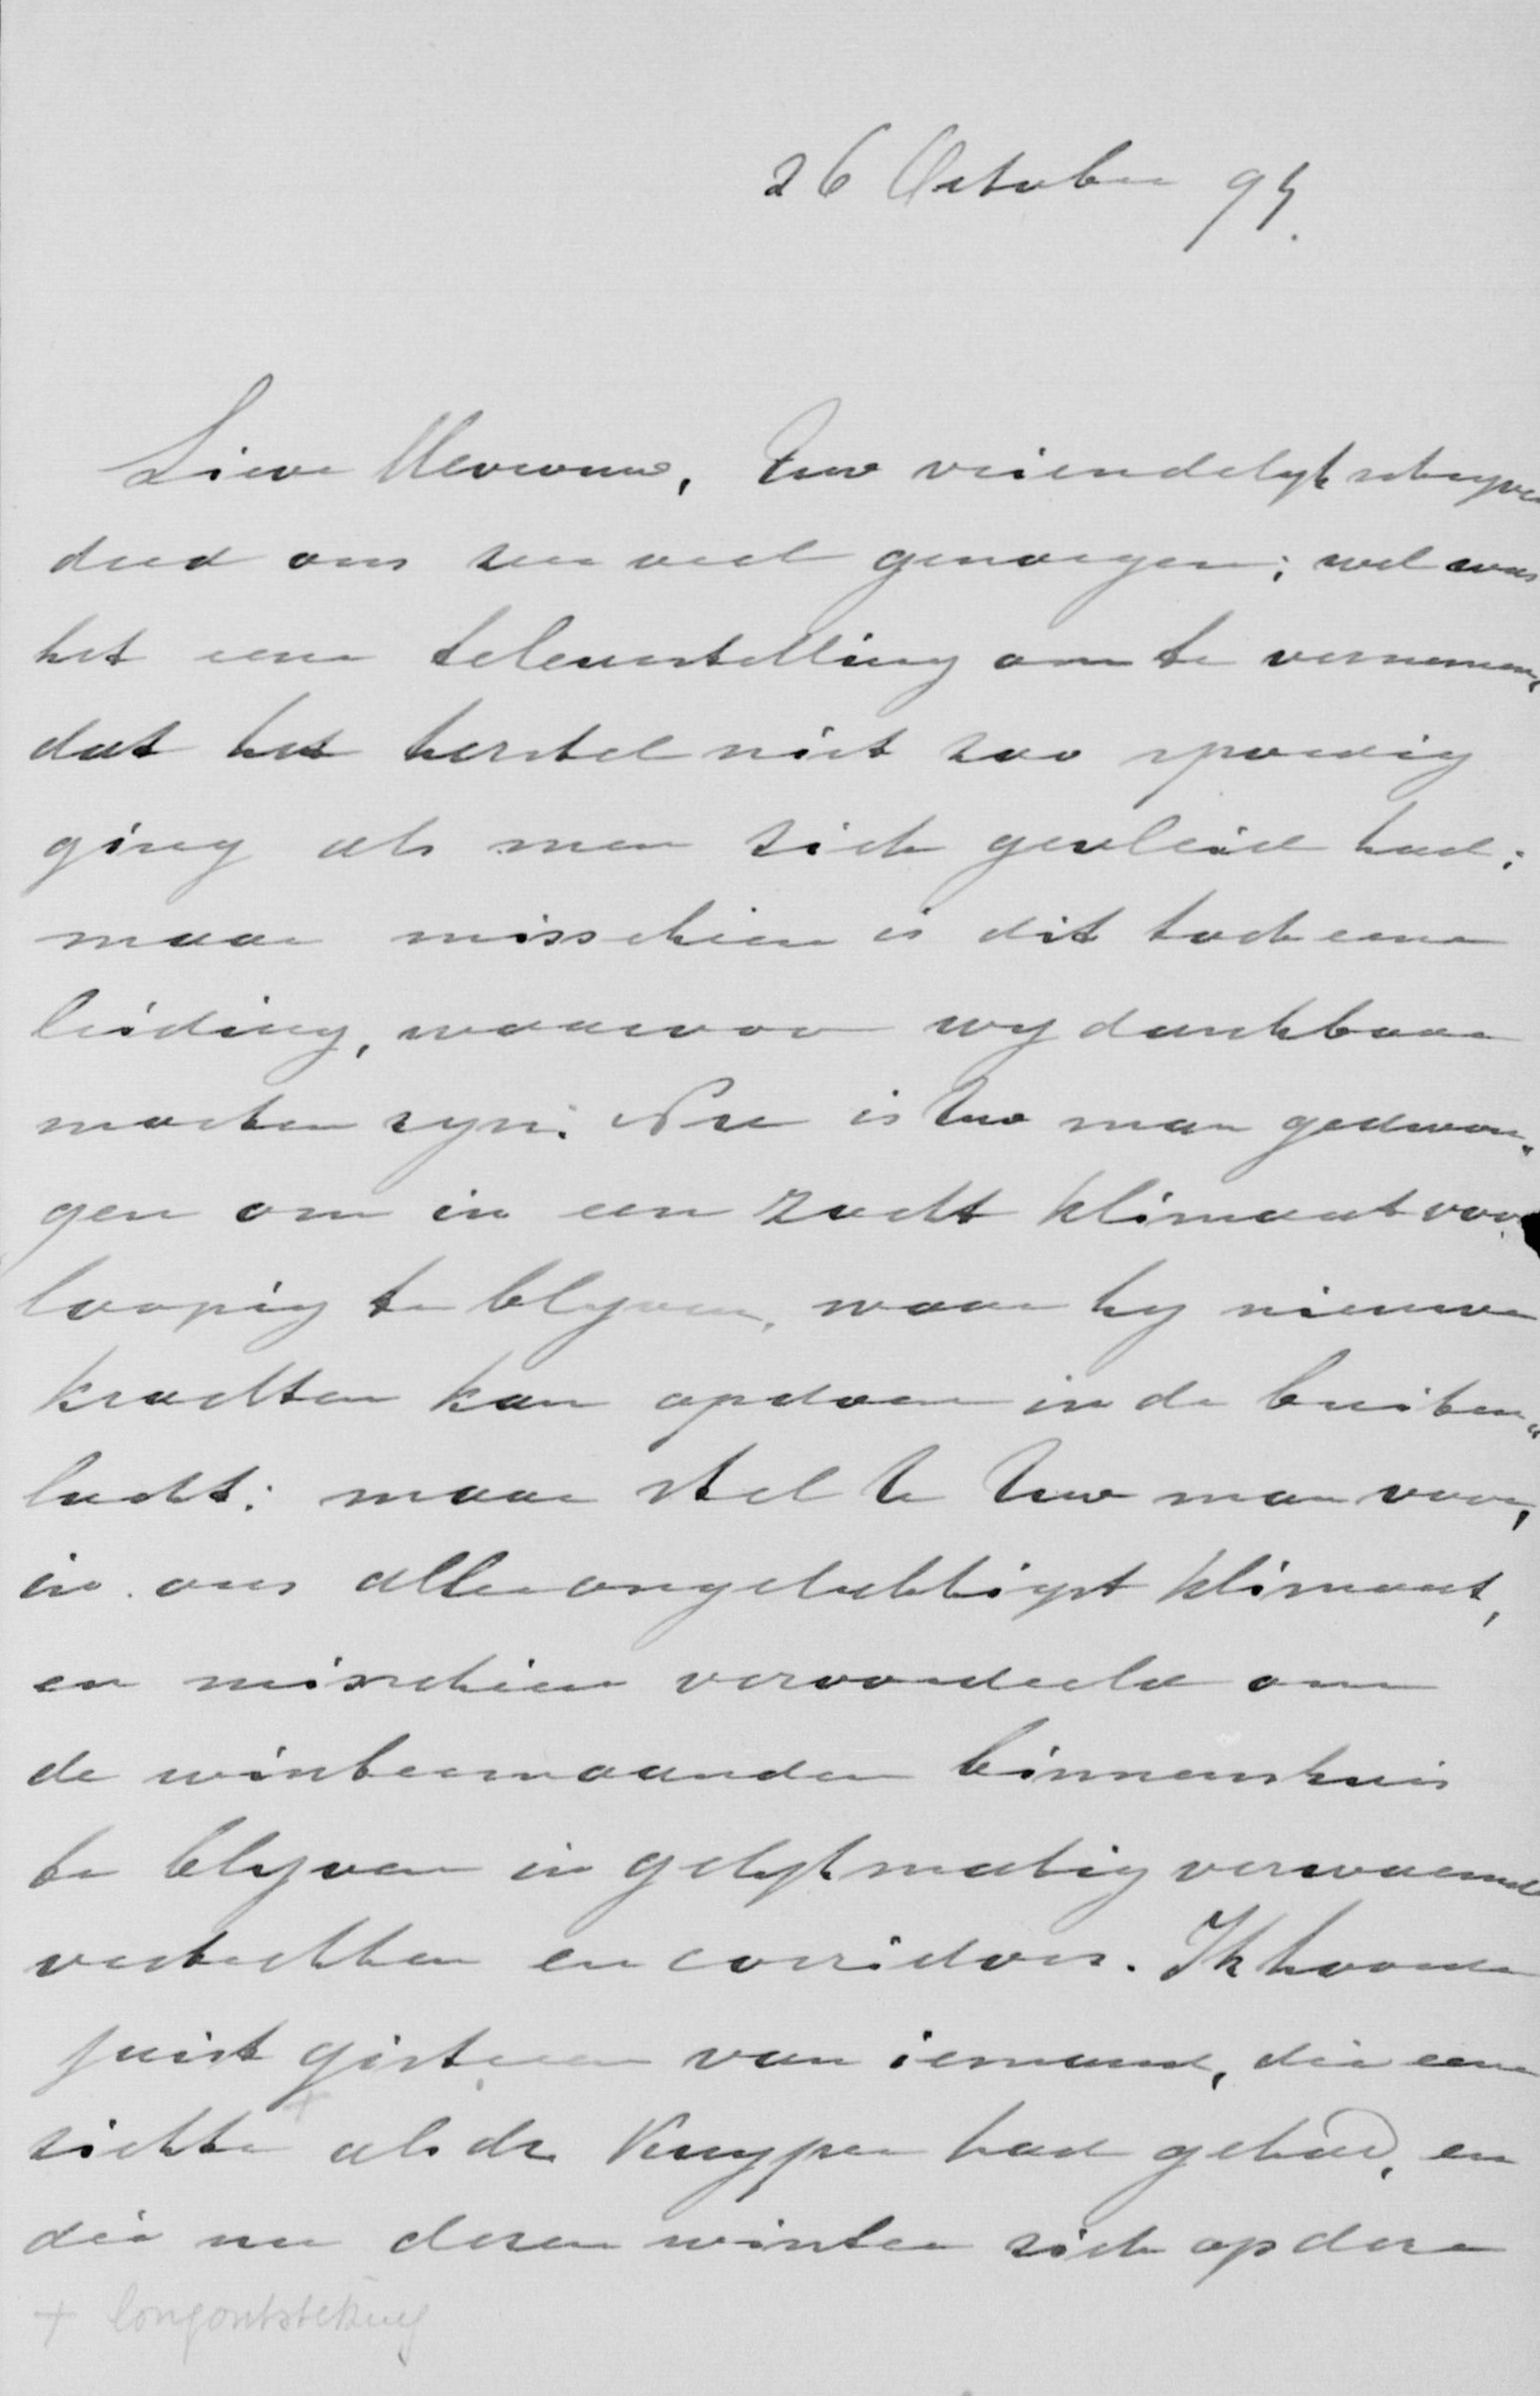 26 October 94.
Lieve Mevrouw, Uw vriendelyk schryven
deed ons zeer veel genoegen; wel was
het eene teleurstelling om te vernemen,
dat het herstel niet zoo spoedig
ging als men zich gevleid had;
maar misschien is dit toch eene
leiding, waarvoor wy dankbaar
moeten zyn. Nu is Uw man gedwon„
gen om in een zacht klimaat voor
loopig te blyven, waar hy nieuwe
krachten kan opdoen in de buiten„
lucht; maar stel U Uw man voor,
in ons allerongelukkigst klimaat,
en misschien veroordeeld om
de wintermaanden binnenshuis
te blyven in gelykmatig verwarmde
vertrekken en corridors. Ik hoorde
juist gisteren van iemand, die eene
ziekte + als dr. Kuyper had gehad, en
die nu dezen winter zich op deze
+ longontsteking